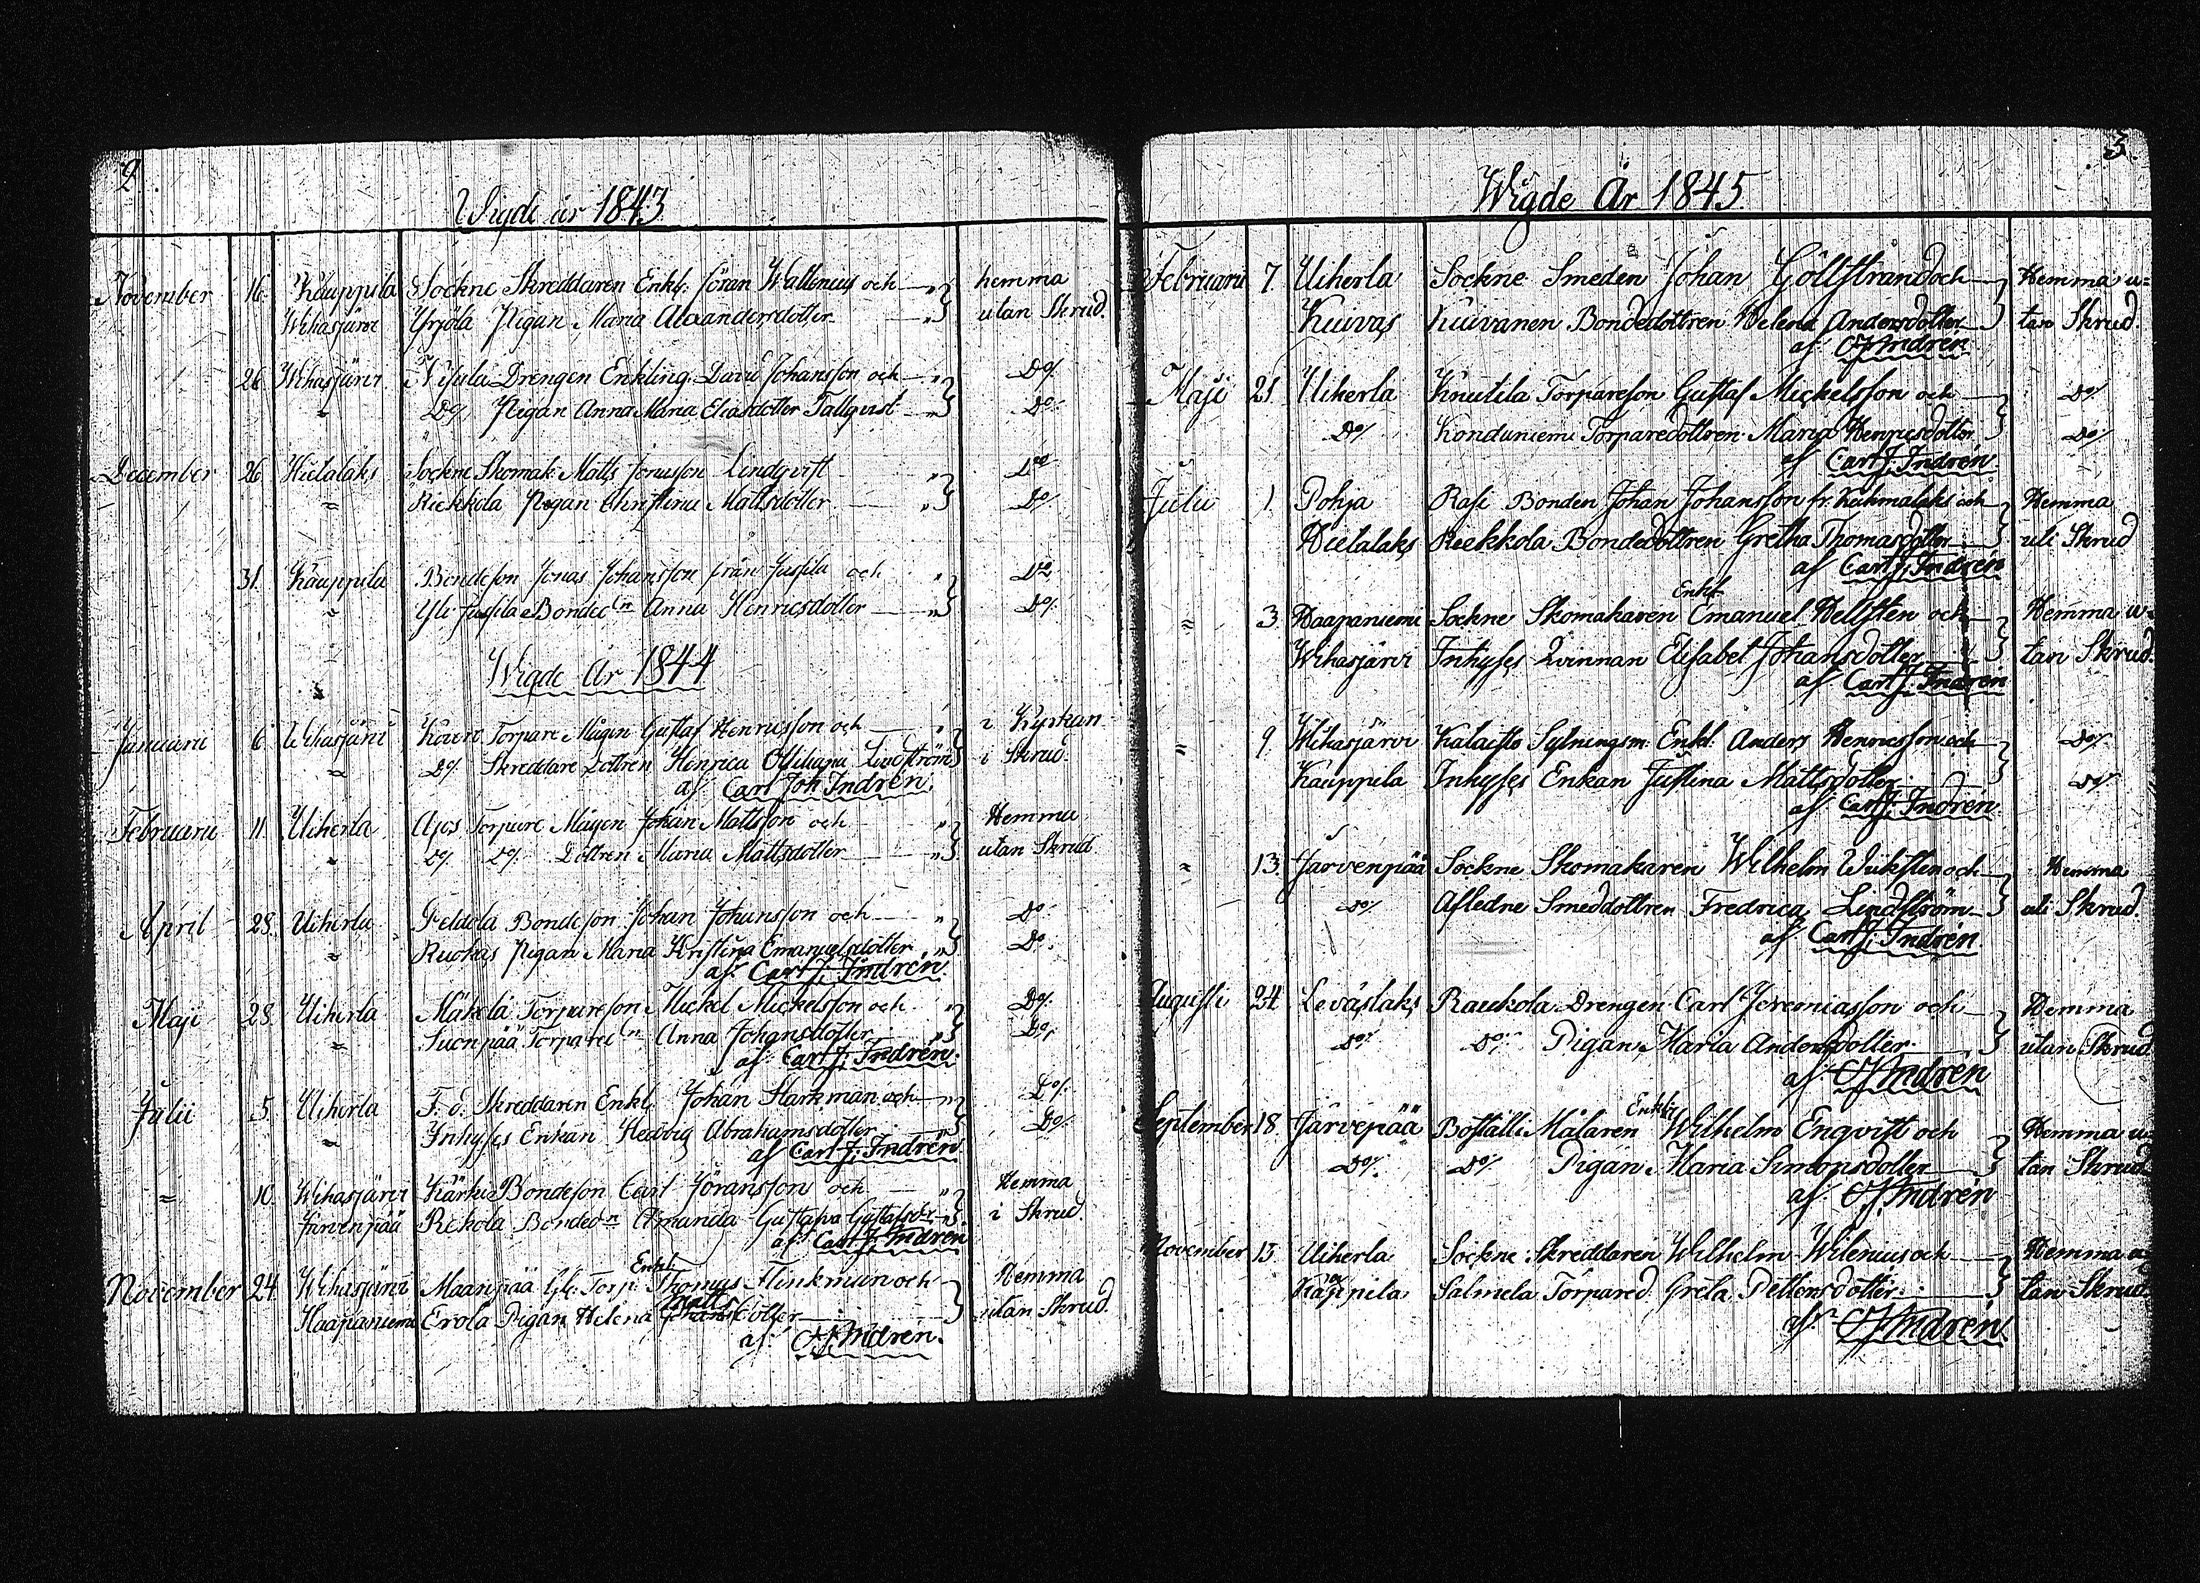 2.
Wigde år 1843
November 16. Kauppila Sockne Skreddaren Enkl. Jöran Wallenius och hemma
Wihasjärvi Yrjola Pigan Maria Alexandersdotter utan Skrud.
26 Wihasjärvi Drengen Enkling David Johansson och Do/.
" Do/. Pigan Anna Maria Eliasdotter Tallqvist Do/.
December 26 Hietalaks Sockne Skomak. Matts Jonasson Lindqvist Do
" Riekkola Pigan Christina Mattsdotter Do/.
31. Kauppila Bondeson Jonas Johansson från Jussila och Do
" Yli Jussila Bonded:n Anna Henricsdotter Do/.
Wigde År 1844
Januarii 6 Wihasjärvi Torpare Mågen Gustaf Henricsson och i Kyrkan
" Do/. Skreddare Dottren Henrica Ottiliana Lindström i Skrud.
af Carl Joh Indrén.
Februarii 11 Uiherla Ajos Torpare Mågen Johan Mattsson och Hemma
" Do/. Do/. Dottren Maria Mattsdotter utan Skrud
April 28. Uiherla Peldola Bondeson Johan Johansson och Do
" Ruokas Pigan Maria Kristina Emanuelsdotter Do.
af Carl J. Indrén.
Maji 28. Uiherla Mäkelä Torpareson Mickel Mickelsson och Do/.
" Suonpää Torpared:n Anna Johansdotter Do/.
af Carl J. Indrén.
Julii 5. Uiherla F. d. Skreddaren Enkl. Johan Starkman och Do/.
" Inhyses Enkan Hedvig Abrahamsdotter Do/.
af Carl J. Indrén
" 10. Wihasjärvi Kärki Bondeson Carl Jöransson och Hemma
Järvenpää Rekola Bonded:n Amanda Gustafva Gustafsd:r i Skrud.
af Carl J. Indrén
Enkl.
November 24. Wihasjärvi Maanpää Torp. Thomas Flinkman och Hemma
Matts
Haapaniemi Erola Pigan Helena Johansdotter utan Skrud.
af. CJIndrén.
3.
Wigde År 1845.
Februarii 7 Uiherla Sockne Smeden Johan Göllstrand och Hemma u=
Kuivas Kuivanen Bondedottren Helena Andersdotter tan Skrud.
af CJIndrén
Maji 21. Uiherla Knutila Torpareson Gustaf Mickelsson och Do/.
Do/. Konduniemi Torparedottren Maria Henricsdotter Do/.
af Carl J. Indrén
Julii 1. Pohja Rasi Bonden Johan Johansson fr. Kuhmalaks och Hemma
Hietalaks Riekkola Bondedottren Gretha Thomasdotter uti Skrud
af Carl J. Indrén
Enkl.
" 3. Haapaniemi Sockne Skomakaren Emanuel Hellsten och Hemma u=
Wihasjärvi Inhyses Qvinnan Elisabet Johansdotter tan Skrud.
af Carl J. Indrén
" 9. Wihasjärvi Kalaisto Sytningsm. Enkl. Anders Henricsson och Do/.
Kauppila Inhyses Enkan Justina Mattsdotter Do/.
af Carl J. Indrén.
" 13. Järvenpää Sockne Skomakaren Wilhelm Wiiksten och Hemma
Do/. Afledne Smeddottren Fredrica Lindström uti Skrud.
af Carl J. Indrén
Augusti 24. Leväslaks Raukola Drengen Carl Jeremiasson och Hemma
Do/. Do/. Pigan Maria Andersdotter utan Skrud
af CJIndrén
Enkl.
September 18. Järvepää Boställs Målaren Wilhelm Enqvist och Hemma u=
Do/. Do/. Pigan Maria Simonsdotter tan Skrud
af CJIndrén
November 13. Uiherla Sockne Skreddaren Wilhelm Wilenius och Hemma u=
Salmela Torpared. Greta Pettersdotter tan Skrud.
af CJIndrén.